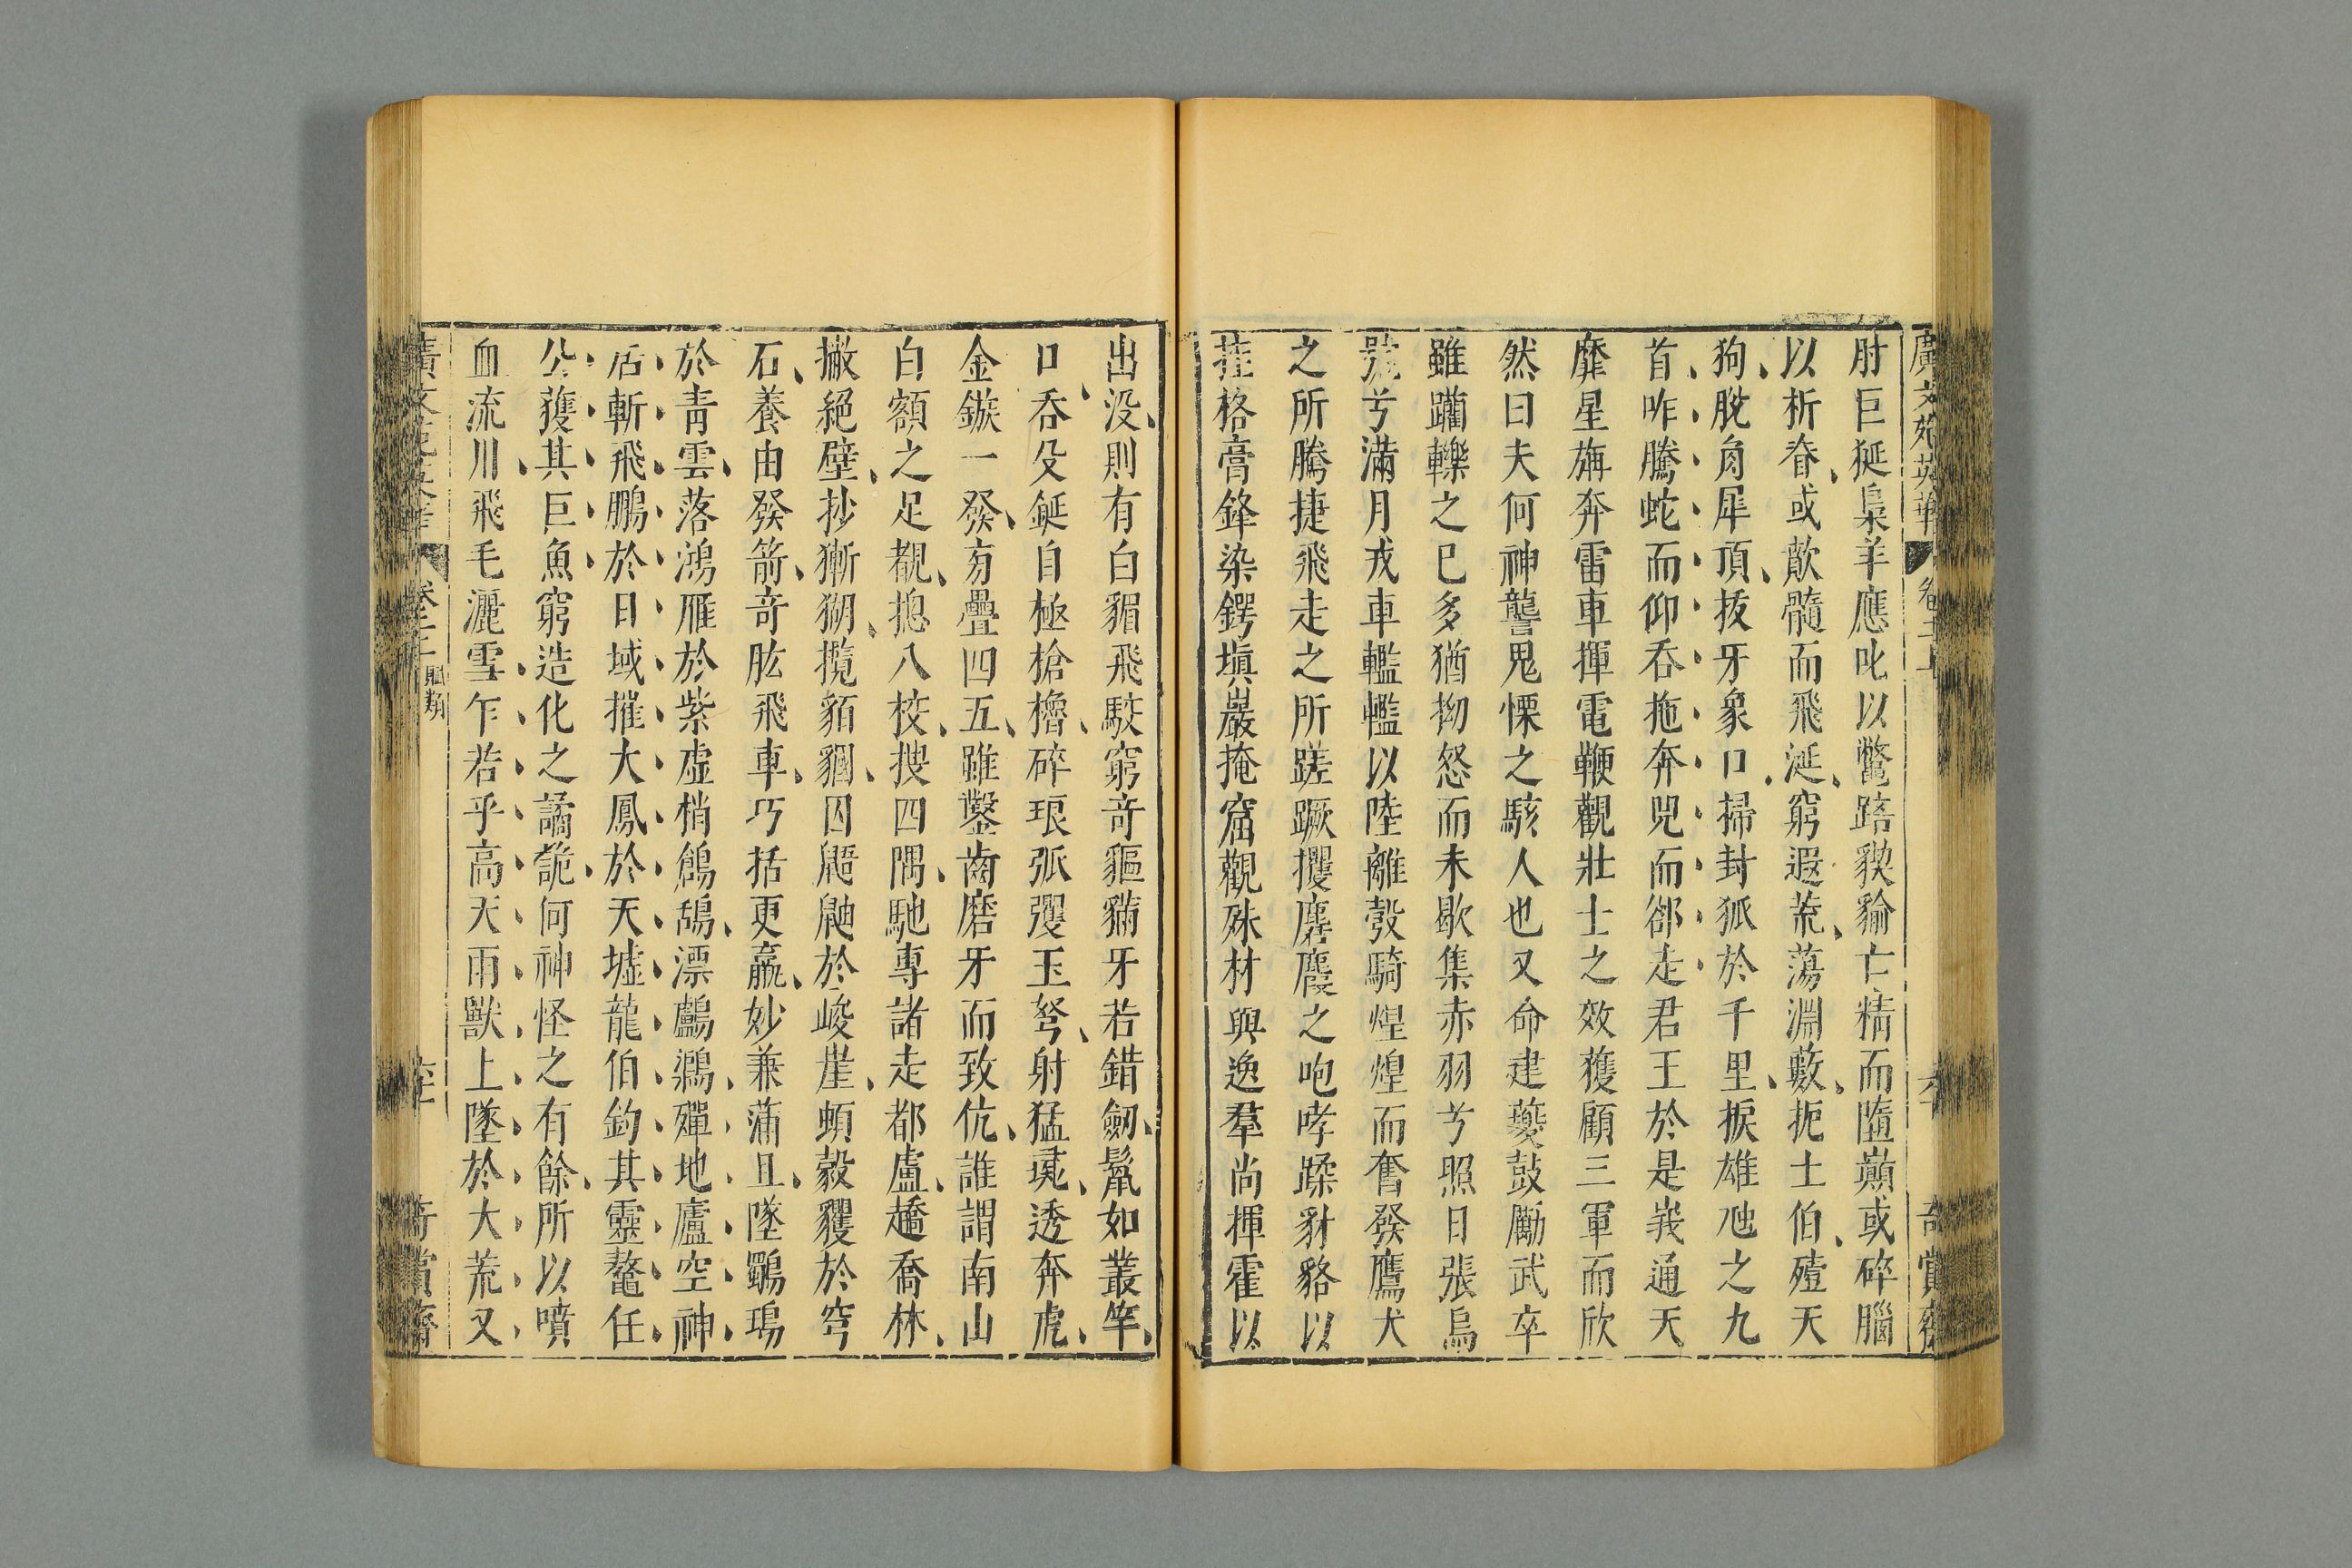 廣文苑英華 卷二十 奇賞齋
肘巨狿梟羊應叱以斃踣猰貐亡精而墮巔或碎腦
以析脊或歕髓而飛涎窮遐荒蕩淵藪扼土伯殪天
狗脫角犀頂拔牙象口掃封狐於千里捩雄虺之九
首咋騰蛇而仰吞拖奔兕而卻走君王於是峩通天
靡星旃奔雷車揮電鞭觀壯士之效獲顧三軍而欣
然曰夫何神讋鬼慄之駭人也又命建夔鼓勵武卒
雖躪轢之已多猶拗怒而未歇集赤羽兮照日張烏
號兮滿月戎車轞轞以陸離彀騎煌煌而奮發鷹犬
之所騰捷飛走之所蹉蹶攫麏麚之咆哮蹂豺貉以
挂格膏鋒染鍔塡巖掩窟觀殊材與逸羣尚揮霍以
出没則有白貑飛駮窮奇貙獌牙若錯劒鬛如叢竿
口呑殳鋋自極槍櫓碎琅弧玃玉弩射猛彘透奔虎
金鏃一發旁疊四五雖鑿齒磨牙而致伉誰謂南山
白額之足覩摠八校搜四隅馳專諸走都盧趫喬林
撇絕壁抄獑猢攬貊貑囚鼯鼬於峻崖頓豰玃於穹
石養由發箭奇肱飛車巧括更羸妙兼蒲且墜鸀鳿
於青雲落鴻雁於紫虛梢鶬鴰漂鸕鷀殫地廬空神
居斬飛鵬於日域摧大鳳於天墟龍伯釣其靈鼇任
公獲其巨魚窮造化之譎詭何神怪之有餘所以噴
血流川飛毛灑雪乍若乎高天雨獸上墜於大荒又
廣文苑英華 賦類 奇賞齋